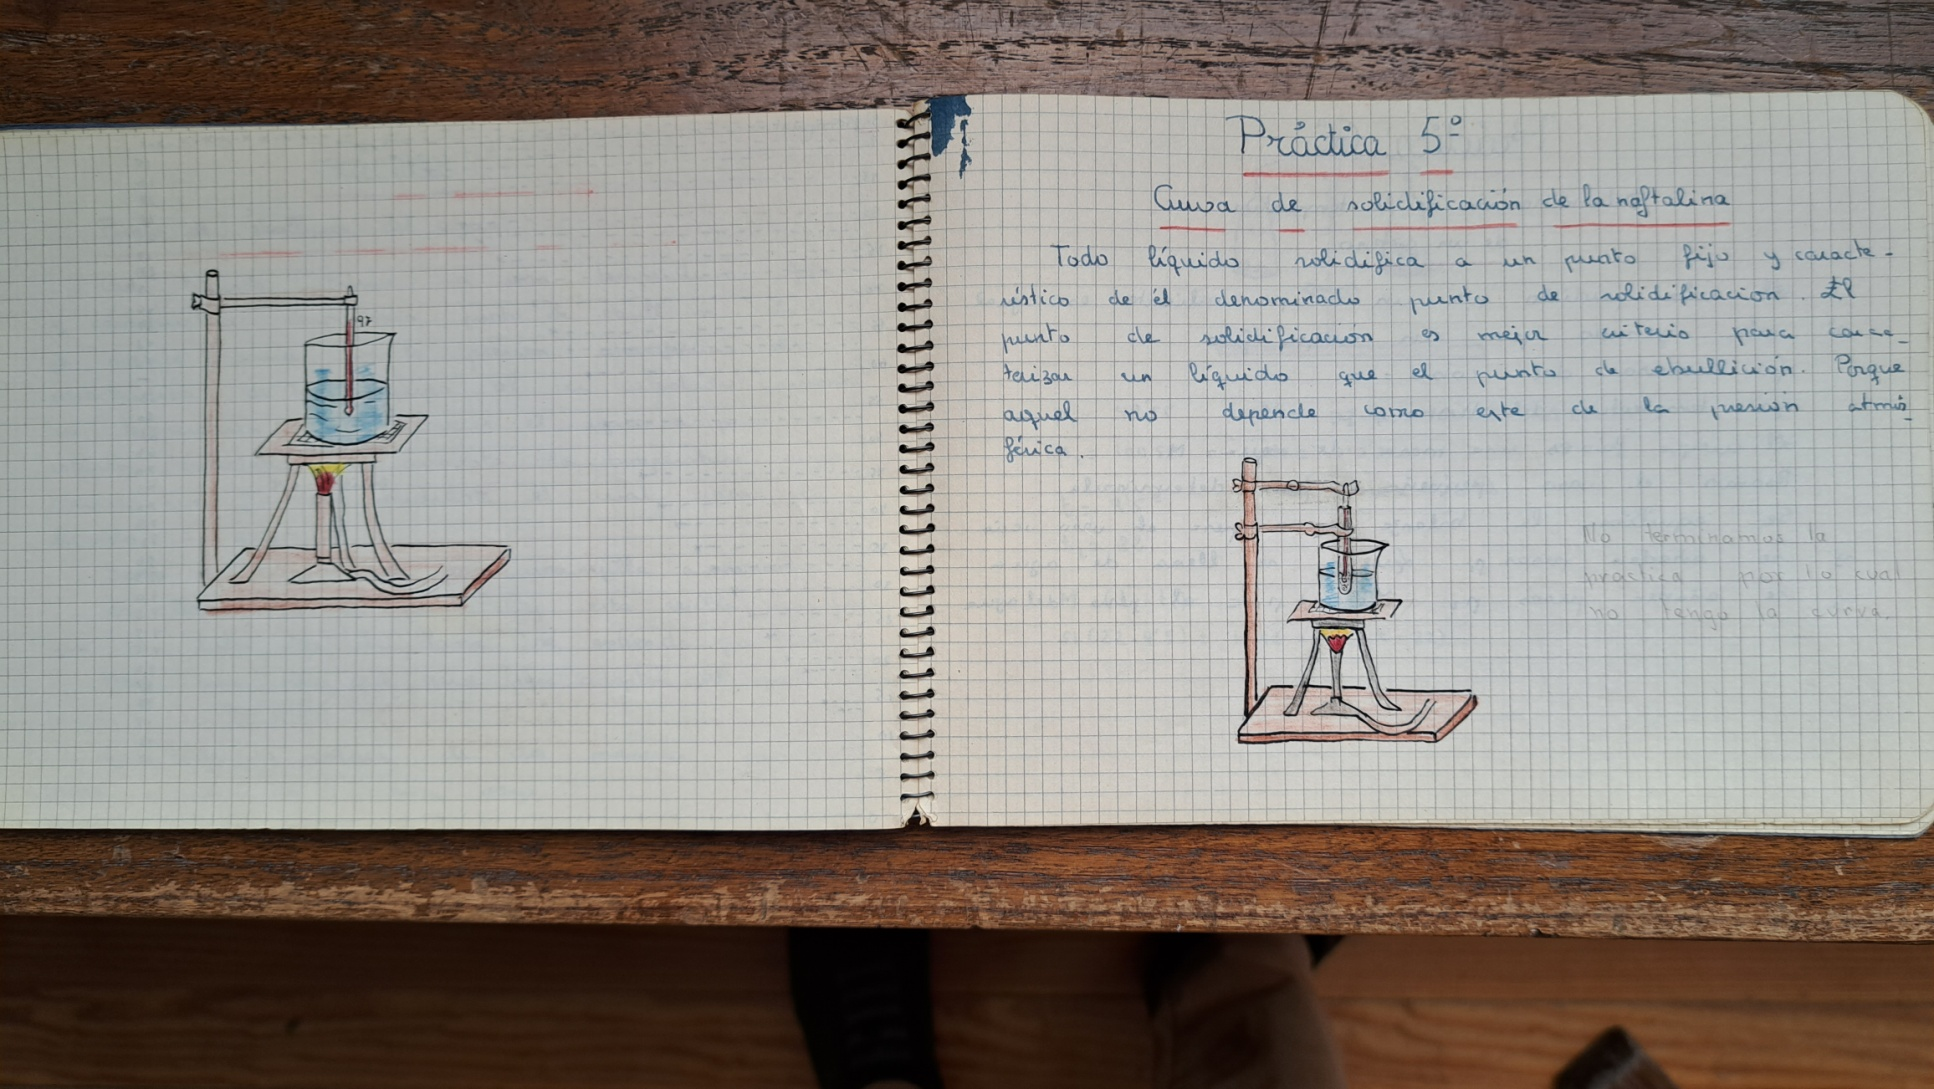 97
Práctica 5º
Curva de solidificación de la naftalina
Todo líquido solidifica a un punto fijo y caracte-
rístico de él denominado punto de solidificacion. El
punto de solidificacion es mejor criterio para carac-
terizar un líquido que el punto de ebullición. Porque
aquel no depende como este de la presión atmos-
férica.
No terminamos la
práctica por lo cual
no tengo la curva.